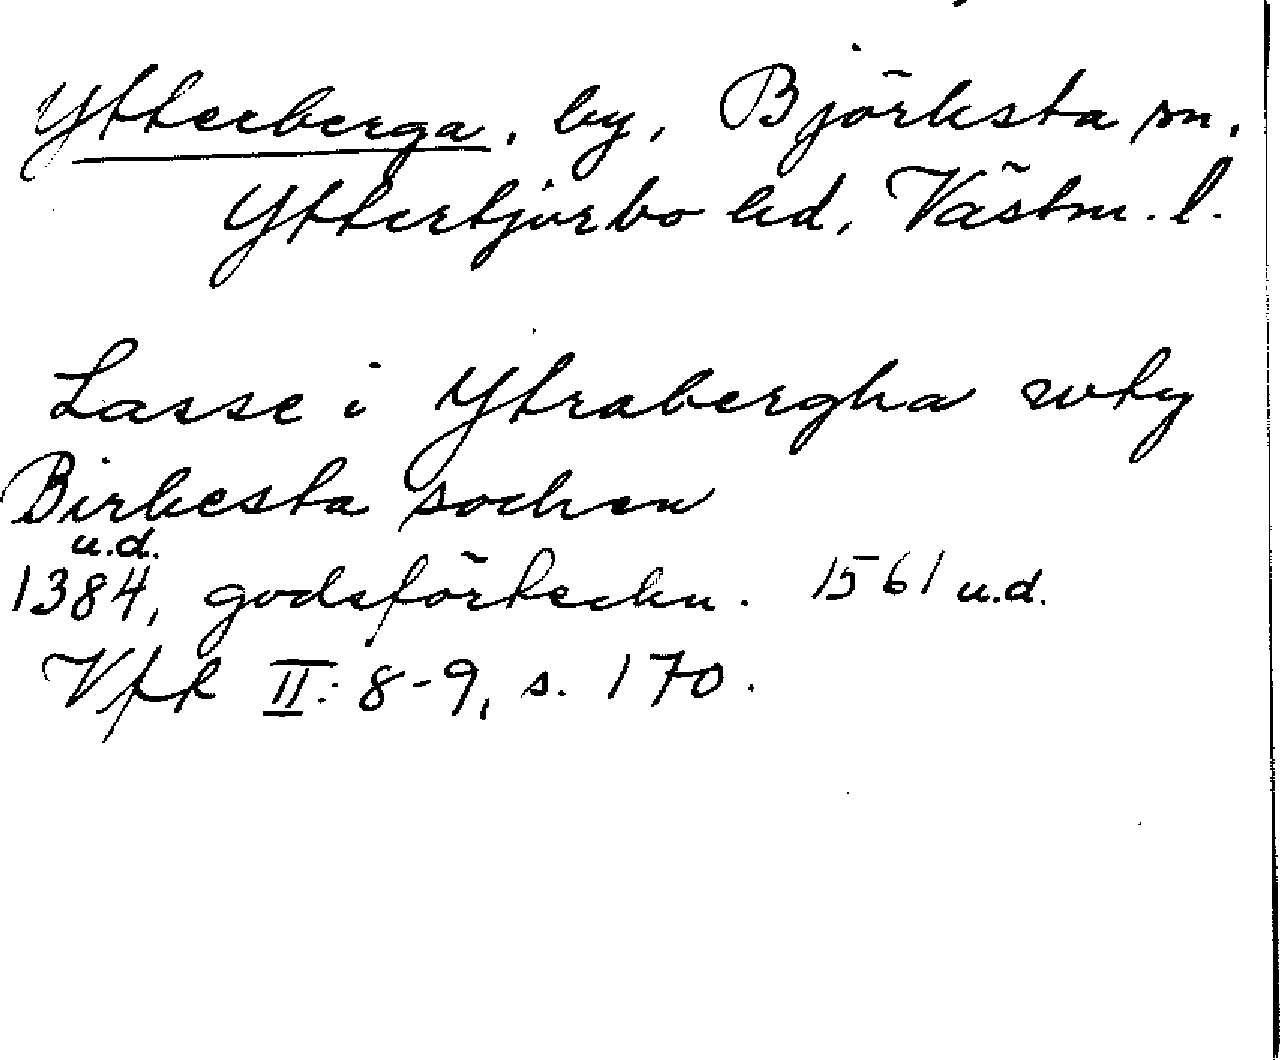 Ytterberga, by, Björksta sn,
Yttertjurbo hd, Västm. l.
Lasse i Ytrabergha wty
Birkesta sochen
u.d.
1384, godsförteckn. 1561 u.d.
Vfk II: 8-9, s. 170.